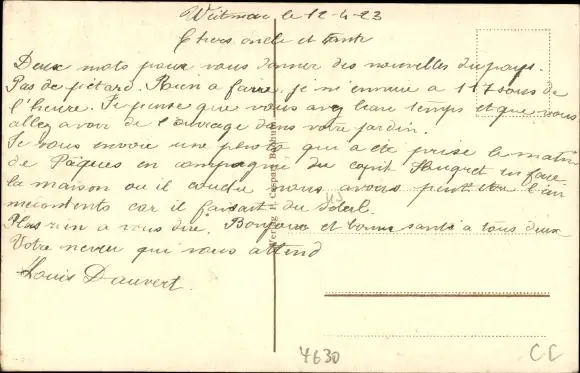 le 12-4-23
Chers oncle et tante
Deux mots pour vous donner des nouvelles du pays.
Pas de pétard. Rien a faire, je m'ennuie a 117 sous de
l'heure. Je pense que vous avez beau temps et que vous
allez avoir de l'ouvrage dans votre jardin.
Je vous envoie une photo qui a été prise le matin
de Pâques en compagnie du en face
la maison ou il couche nous avons l'air
mécontents car il faisait du soleil.
Plus rien a vous dire. Bonjour et bonne santé a tous deux
Votre neveu qui vous attend
Louis Dauvert.
Verlag F. Caspary
4630
CC